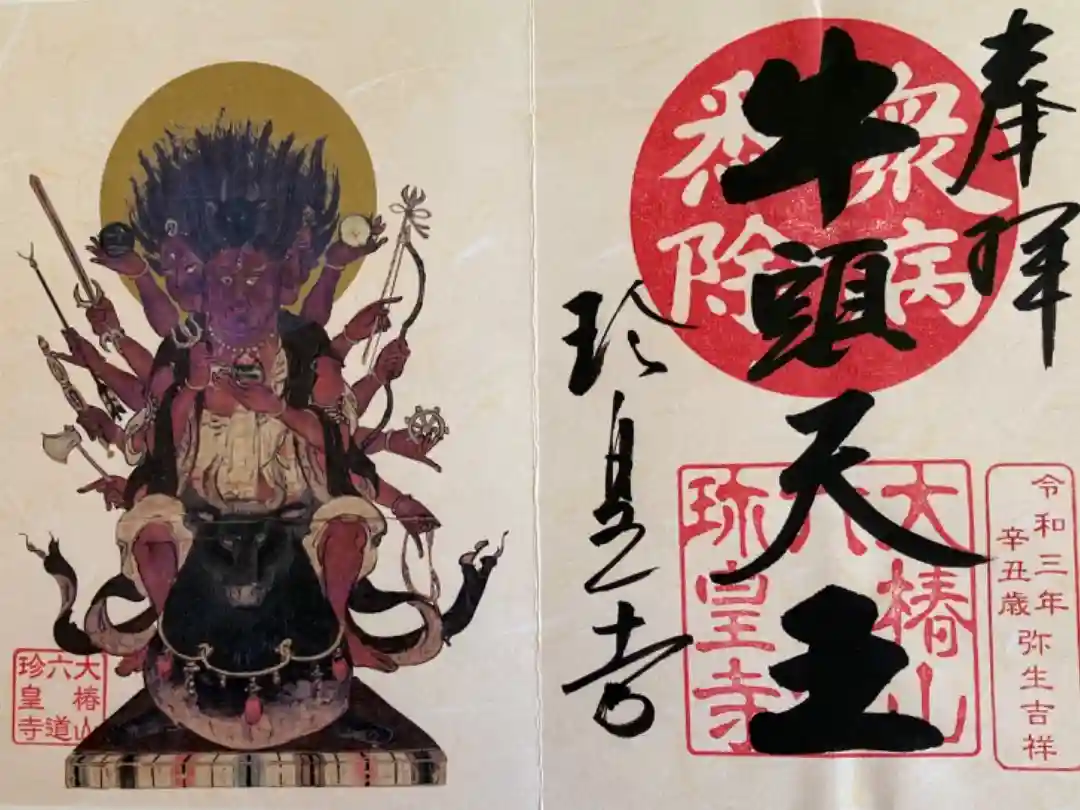 奉拝
衆病
悉除
牛頭天王
珍皇寺
大椿山
六
珎皇寺
令和三年
辛丑歳
弥生吉祥
大椿山
六道
珍皇寺